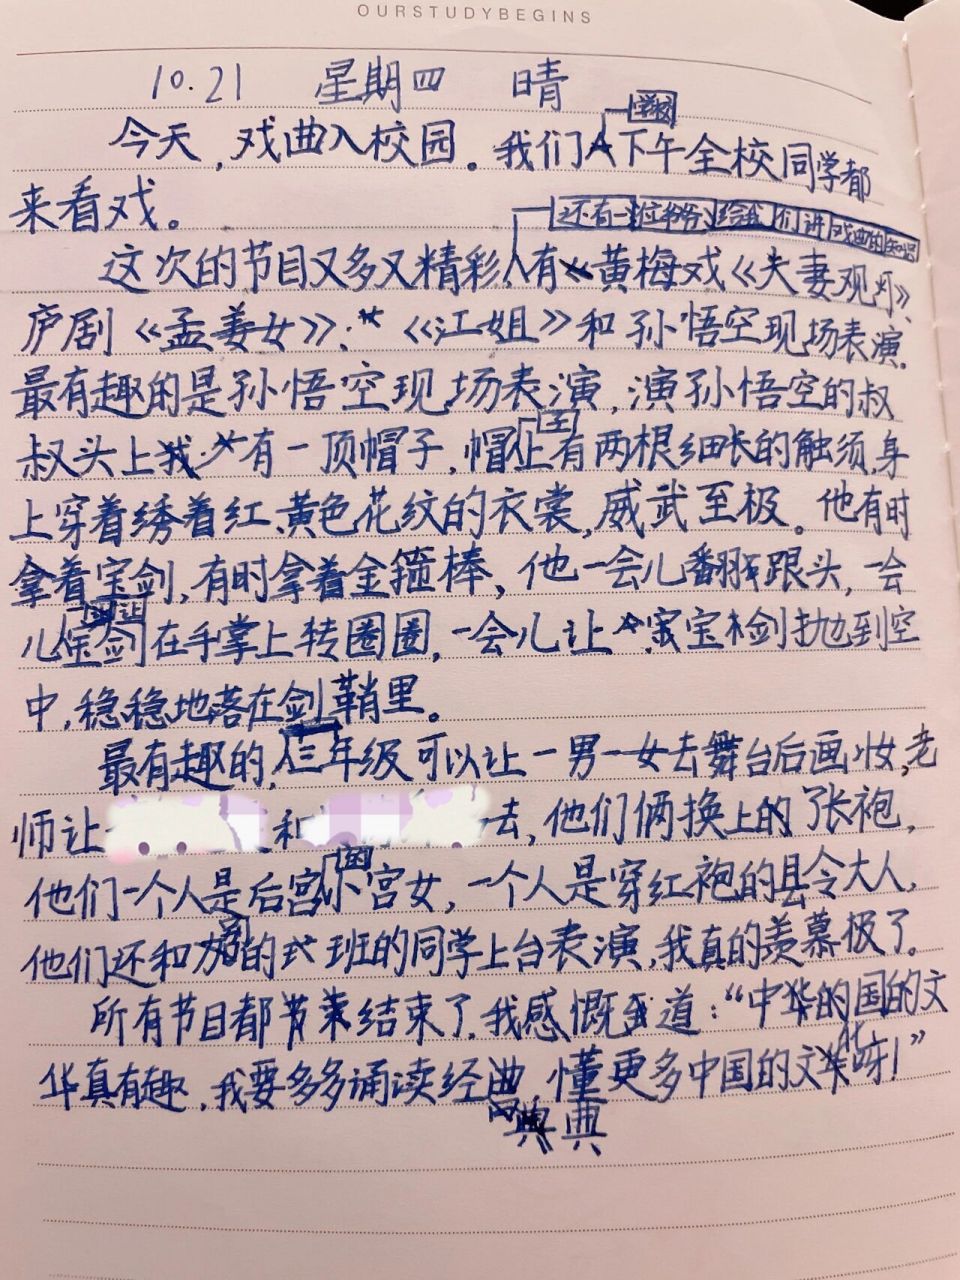 OURSTUDYBEGINS
10.21 星期四 晴
学校
今天,戏曲入校园。我们下午全校同学都
来看戏。
还有一位爷爷给我们讲戏曲的知识
这次的节目又多又精彩,有黄梅戏《夫妻观灯》、
庐剧《孟姜女》:《江姐》和孙悟空现场表演.
最有趣的是孙悟空现场表演,演孙悟空的叔
叔头上有一顶帽子,帽上有两根细长的触须,身
上穿着绣着红、黄色花纹的衣裳,威武至极。他有时
拿着宝剑,有时拿着金箍棒,他一会儿翻跟头,一会
让
儿宝剑在手掌上转圈圈,一会儿让宝剑抛到空
中,稳稳地落在剑鞘里。
最有趣的,三年级可以让一男一女去舞台后画妆,老
师让 和 去,他们俩换上的了张袍,
他们一个人是后宫小宫女,一个人是穿红袍的县令大人,
他们还和别的班的同学上台表演,我真的羡慕极了。
所有节目都结束了,我感慨道:“中华的国的文
华真有趣,我要多多诵读经典,懂更多中国的文化呀!”
典